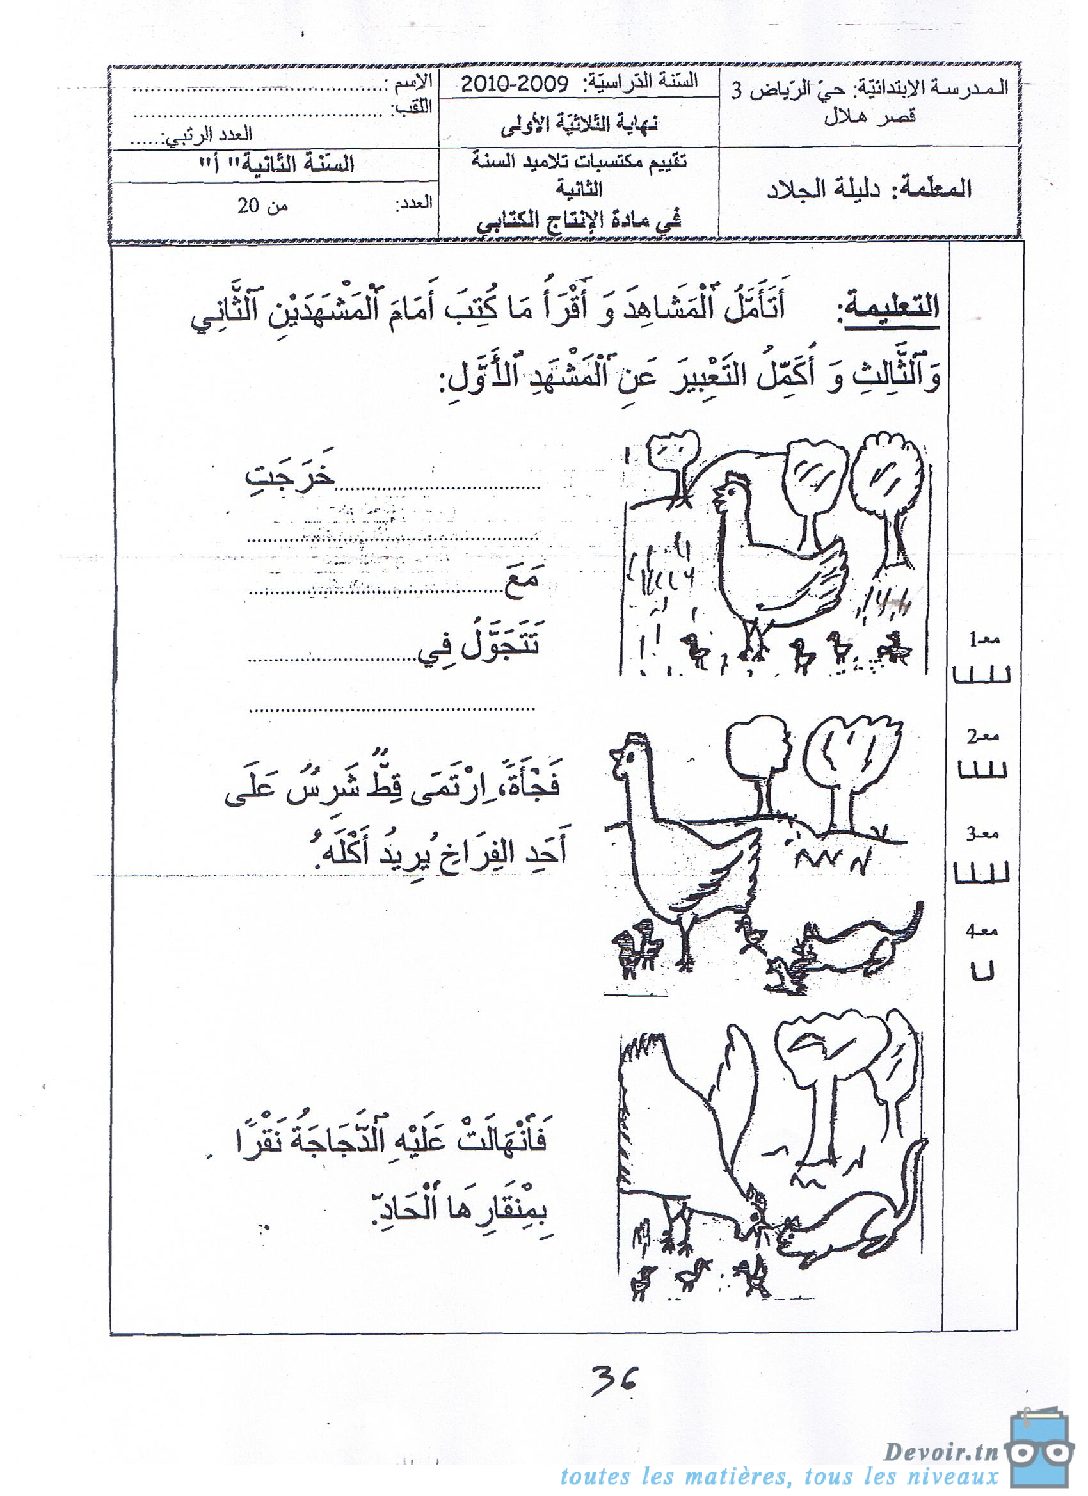 المدرسة الإبتدائيّة: حيّ الرّياض 3
قصر هلال
السّنة الدّراسيّة: 2009-2010
الإسم :..............................
اللقب: ..............................
العدد الرتبي:......
نهاية الثّلاثيّة الأولى
المعلّمة: دليلة الجلاد
تقييم مكتسبات تلاميذ السنة
الثانية
في مادة الإنتاج الكتابي
السّنة الثّانية" أ"
العدد: من 20
التعليمة: أَتَأَمَّلُ ٱلْمَشَاهِدَ وَ أَقْرَأُ مَا كُتِبَ أَمَامَ ٱلْمَشْهَدَيْنِ ٱلثَّانِي
وَٱلثَّالِثِ وَ أُكَمِّلُ التَعْبِيرَ عَنِ ٱلْمَشْهَدِ ٱلأَوَّلِ:
خَرَجَتِ..............................
........................................
مَعَ...................................
تَتَجَوَّلُ فِي.........................
........................................
مع1
مع2
مع3
مع4
فَجْأَةً، اِرْتَمَى قِطٌّ شَرِسٌ عَلَى
أَحَدِ الفِرَاخِ يُرِيدُ أَكْلَهُ.
فَٱنْهَالَتْ عَلَيْهِ ٱلدَّجَاجَةُ نَقْرًا
بِمِنْقَارِهَا ٱلْحَادِّ.
36
Devoir.tn
toutes les matières, tous les niveaux